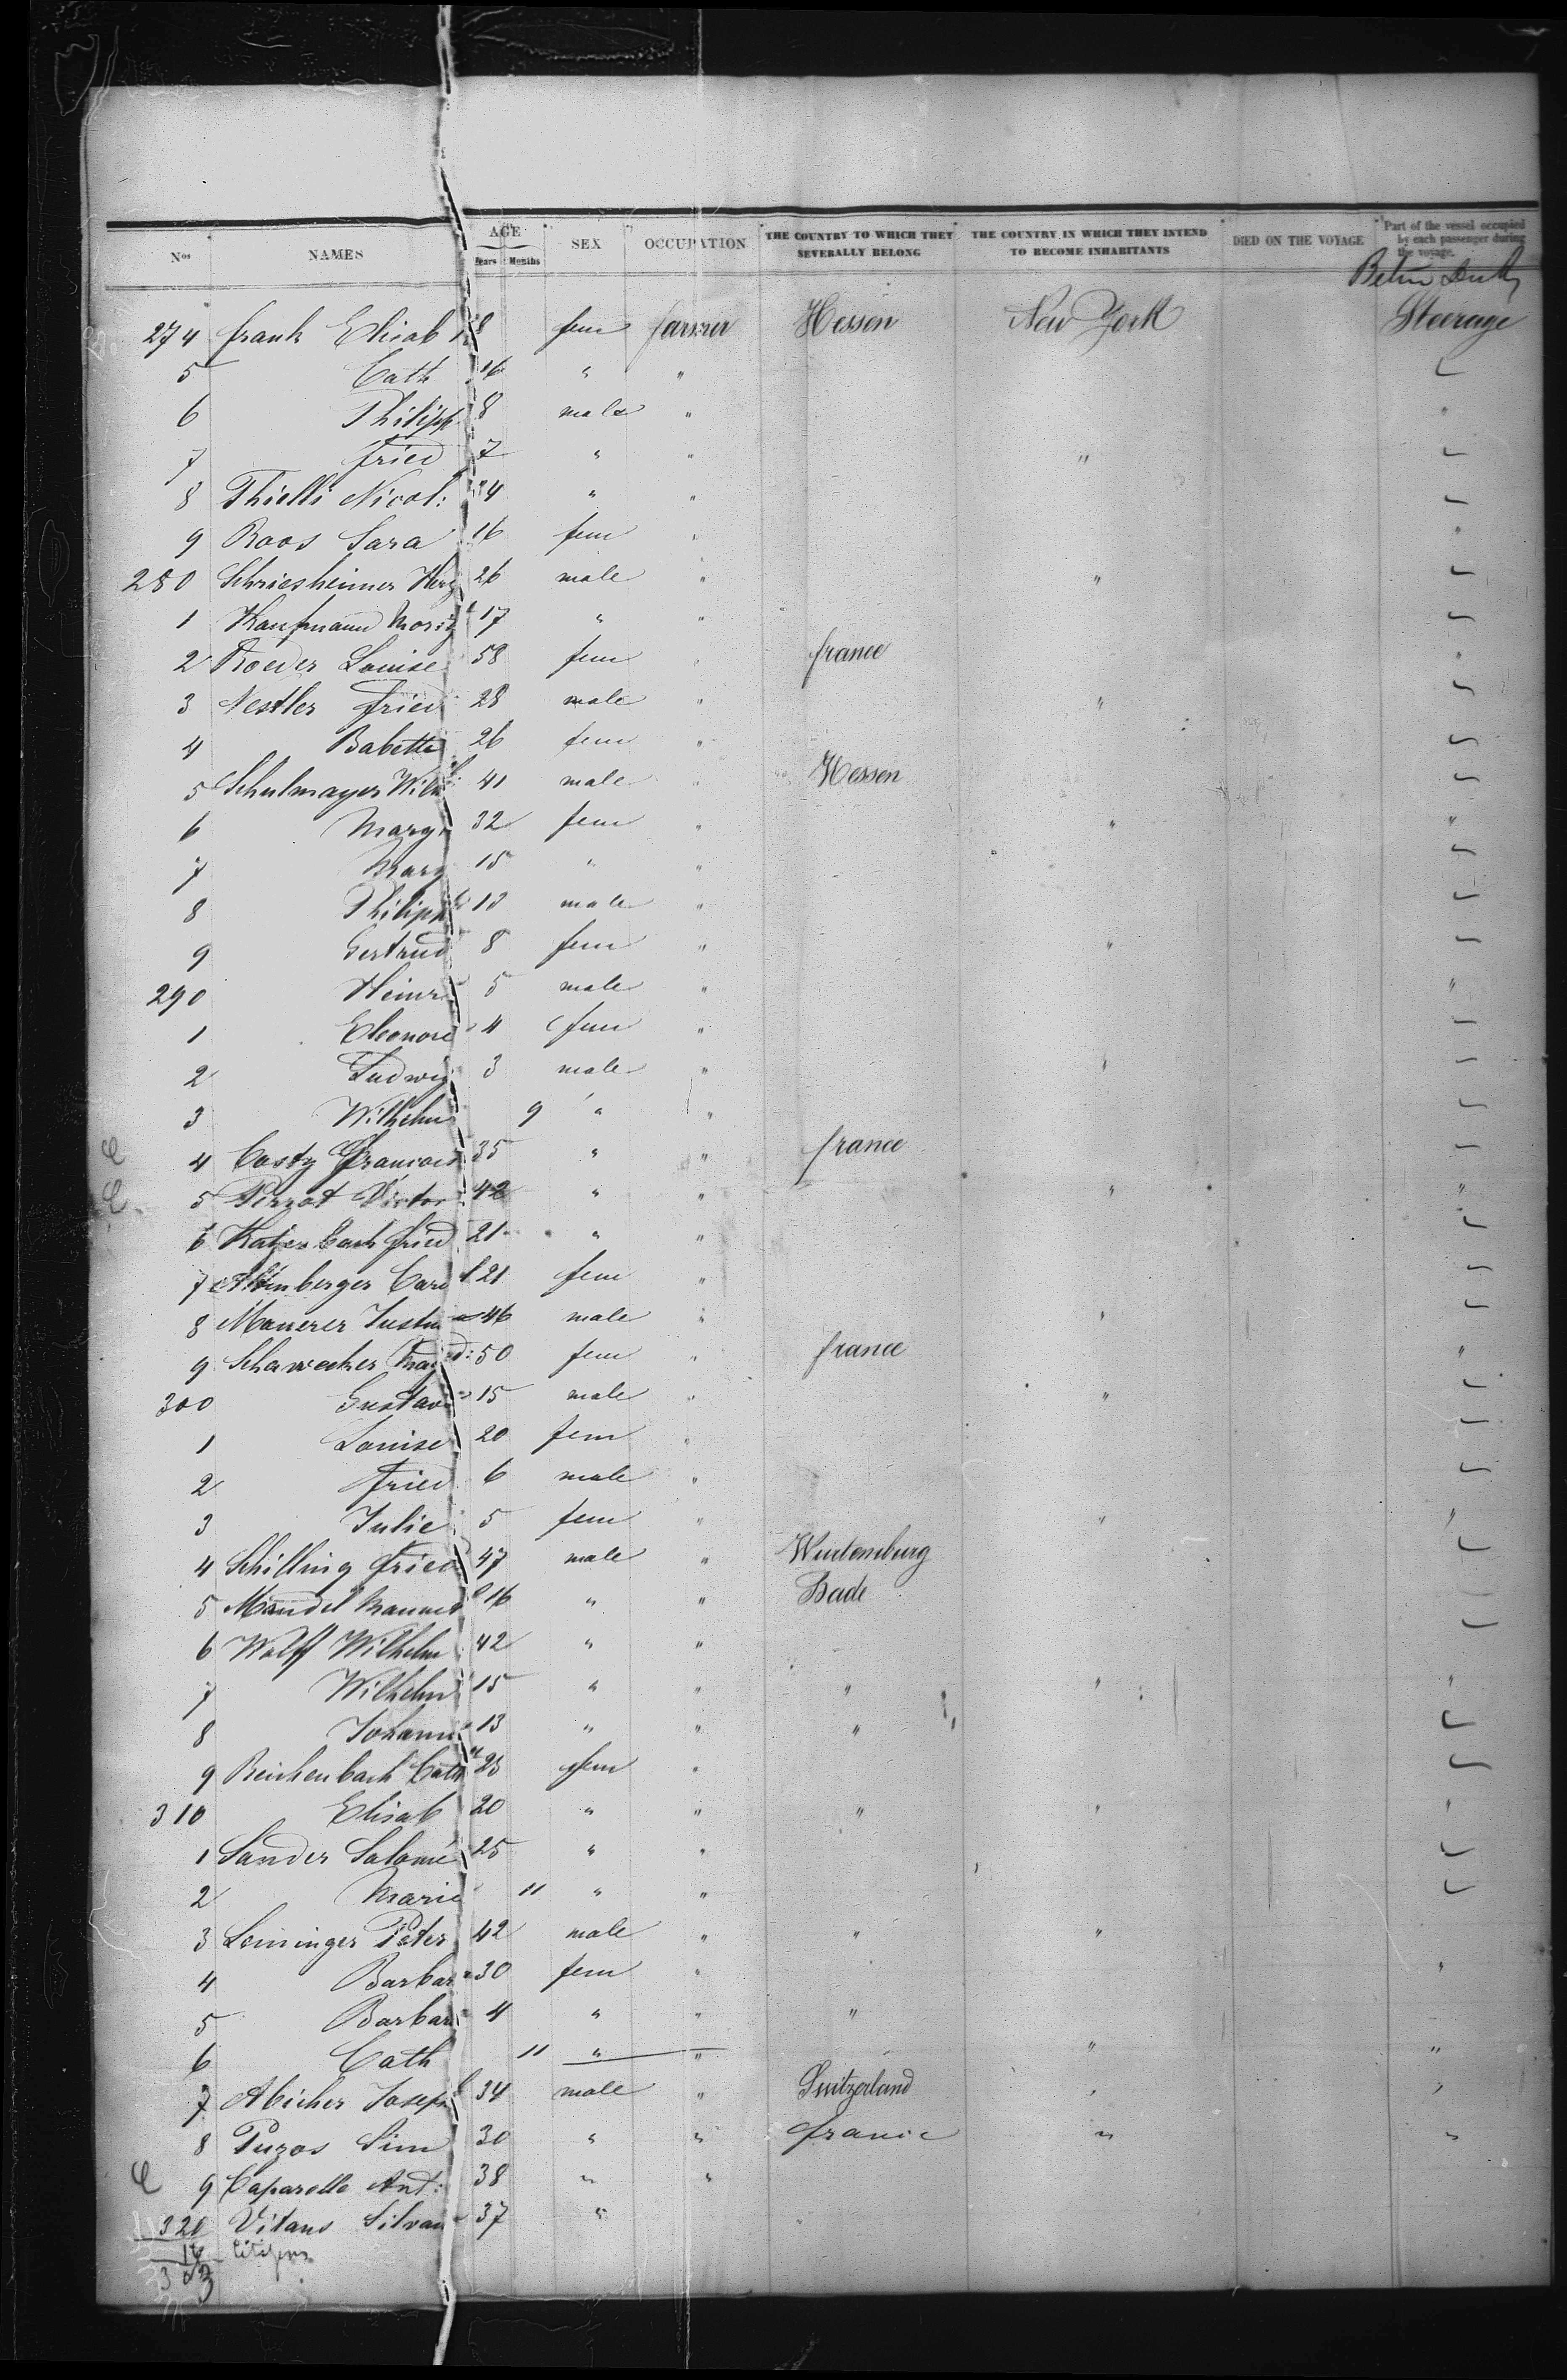 Nos NAMES AGE Years Months SEX OCCUPATION THE COUNTRY TO WHICH THEY SEVERALLY BELONG THE COUNTRY IN WHICH THEY INTEND TO BECOME INHABITANTS DIED ON THE VOYAGE Part of the vessel occupied by each passenger during the voyage.
274 frank Elisab 8 fem farmer Hessen New York Steerage
5 Cath 16 " "
6 Philipp 8 male "
7 fried 7 " " "
8 Thielli Nicol: 34 " "
9 Roos Sara 16 fem "
280 Schriesheimer Herz 26 male " "
1 Kaufmann Moritz 17 " "
2 Roeder Louise 58 fem " france "
3 Nestler fried 28 male " "
4 Babette 26 fem "
5 Schulmayer Wilh 41 male " Hessen
6 Marg 32 fem " " "
7 Marg 15 " "
8 Philipp 10 male "
9 Gertrud 8 fem " "
290 Heinr 5 male " "
1 Eleonore 4 fem "
2 Ludwig 3 male " "
3 Wilhelm 9 " "
4 Costy Francois 35 " " france
5 Pierrot Victor 42 " " " "
6 Katzenbach fried 21 " "
7 Altenberger Carl 21 fem "
8 Maurer Justin 46 male " "
9 Schawecker Mag 50 fem " france "
300 Gustav 15 male " "
1 Louise 20 fem "
2 fried 6 male "
3 Julie 5 fem " " "
4 Schilling fried 47 male " Wurtemburg
5 Mandel Manuel 16 " " Bade
6 Wolff Wilhelm 42 " "
7 Wilhelm 15 " " " " "
8 Johann 13 " " "
9 Reichenbach Cath 23 fem "
310 Elisab 20 " " " " "
1 Sander Salomé 25 " "
2 Marie 11 " "
3 Leininger Peter 42 male " " "
4 Barbar 30 fem " "
5 Barbar 4 " " "
6 Cath 11 " " " "
7 Abicher Joseph 34 male " Switzerland " "
8 Puzos Sim 30 " " france " "
9 Caparello Ant: 38 " "
320 Vitans Silvan 37 "
Citizens